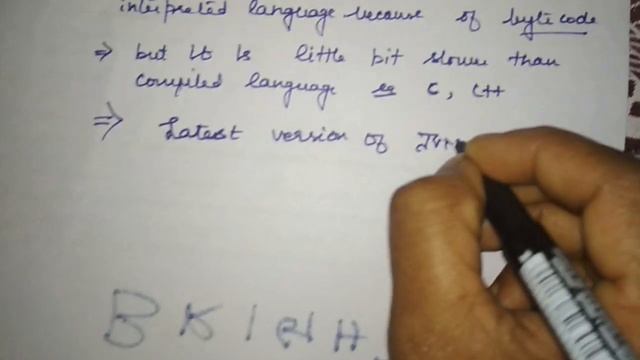 interpreted language because of bytecode
⇒ but it is little bit slower than
compiled language eg C, C++
⇒ Latest version of